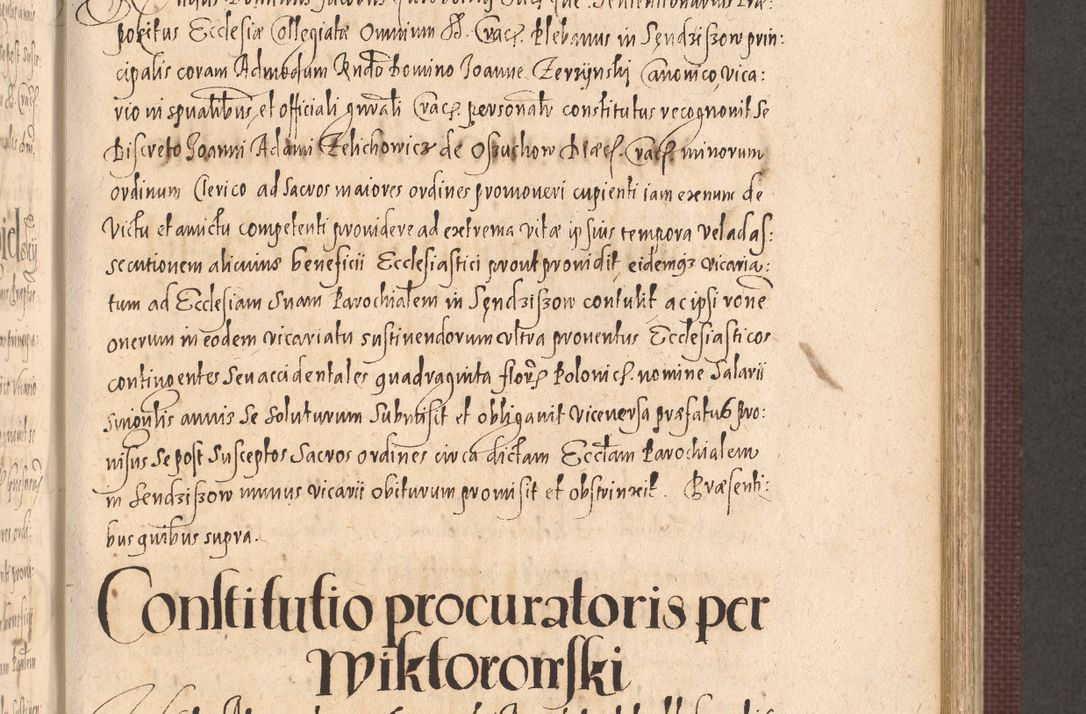 positus Ecclesiæ Collegiatæ Omnium SS. Crac. Plebanus in Sendziszow prin:
cipalis coram Admodum Rndo Domino Joanne Zerzynski Canonico, vica:
rio in spualibus, et officiali gnrali Crac. personalr constitutus recognovit se
Discreto Joanni Adami Zelichowicz de Osuchow Diæc. Crac. minorum
ordinum Clerico ad sacros maiores ordines promoveri cupienti iam exnunc de
victu et amictu competenti providere ad extrema vitæ ipsius tempora vel ad as:
secutionem alicuius beneficii Ecclesiastici prout providit, eidemq3 vicaria:
tum ad Ecclesiam suam Parochialem in Sendziszow contulit, ac ipsi rone
onerum in eodem vicariatu sustinendorum ultra proventus Ecclesiasticos
contingentes seu accidentales quadraginta flor. Polonic. nomine salarii
singulis annis se soluturum submisit et obligavit viceversa præfatus pro:
visus se post susceptos sacros ordines circa dictam Ecclam Parochialem
in Sendziszow munus vicarii obiturum promisit et obstrinxit. Præsenti:
bus quibus supra.
Constitutio procuratoris per
Wiktorowski